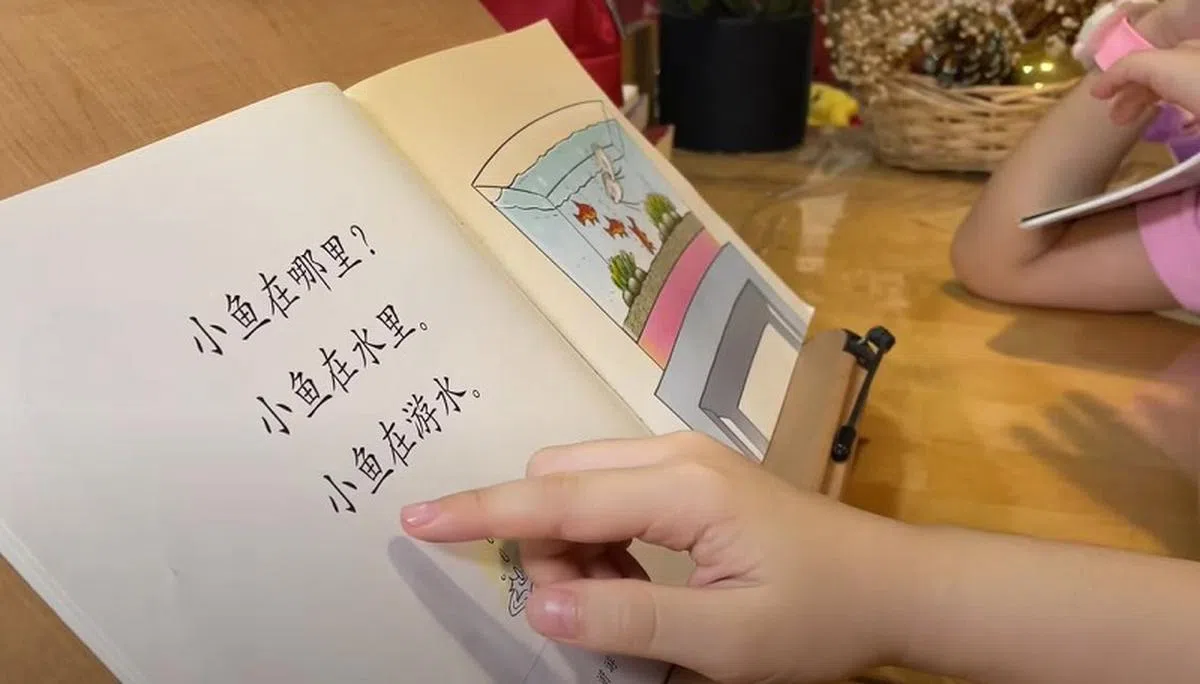 小鱼在哪里？
小鱼在水里。
小鱼在游水。